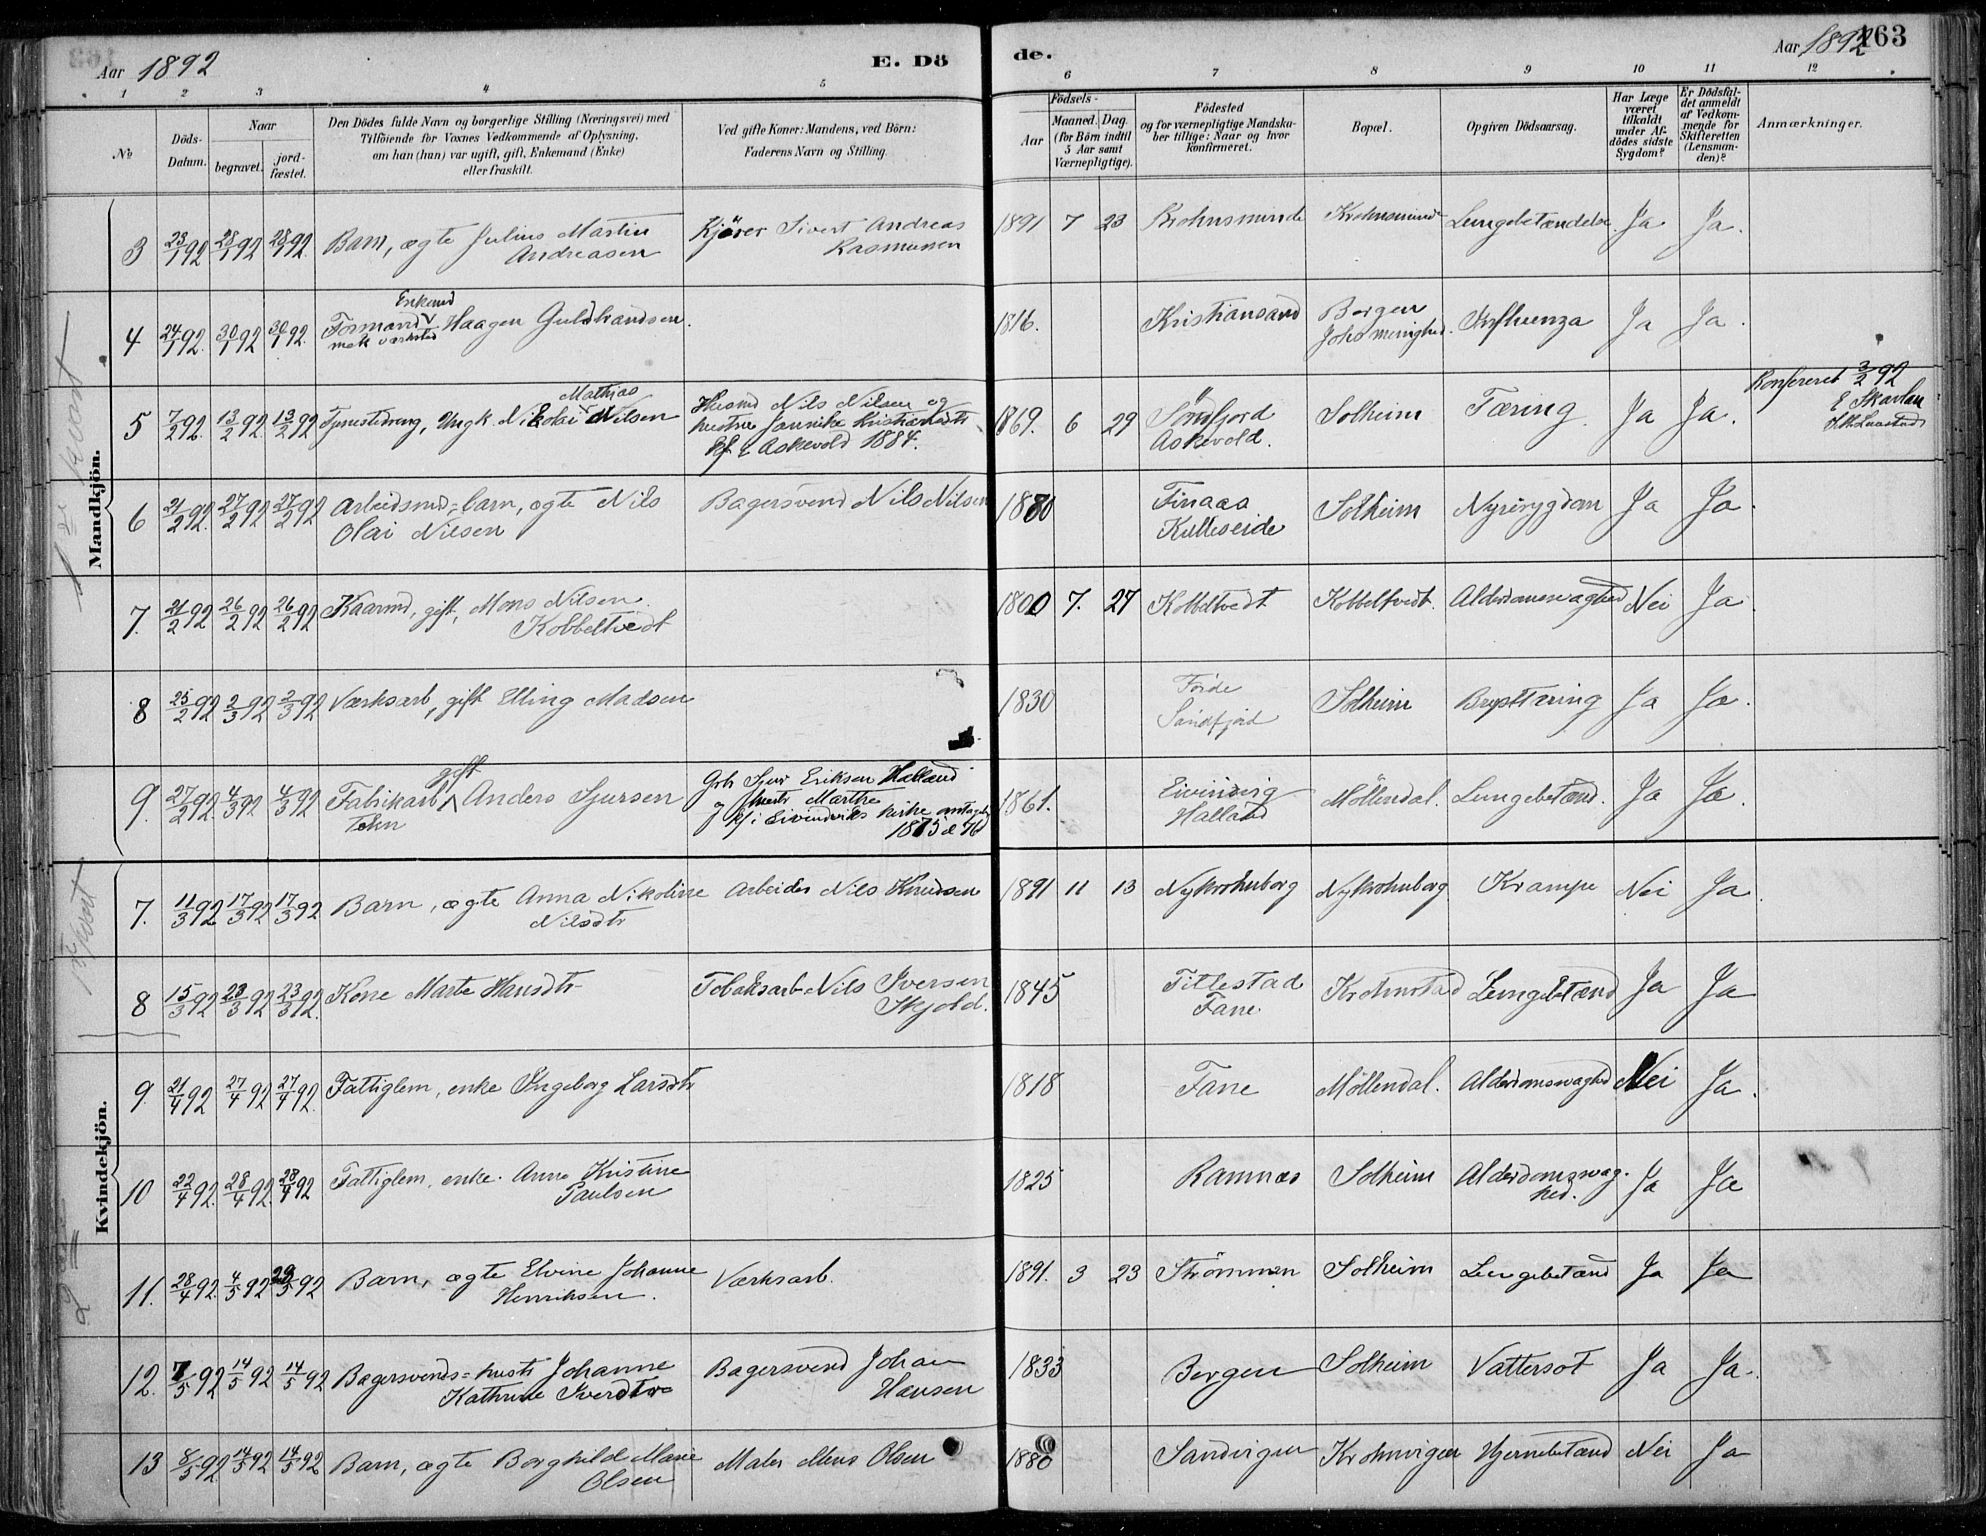 Aar 1892
E. Dö
de.
Aar 1892
163
1 2 3 4 5 6 7 8 9 10 11 12
№
Döds-
Datum.
Naar
begravet.
jord-
fæstet.
Den Dödes fulde Navn og borgerlige Stilling (Næringsvei) med
Tilföiende for Voxnes Vedkommende af Oplysning,
om han (hun) var ugift, gift, Enkemand (Enke)
eller fraskilt.
Ved gifte Koner: Mandens, ved Börn:
Faderens Navn og Stilling.
Födsels-
Aar
Maaned. Dag.
(for Börn indtil
5 Aar samt
Værnepligtige).
Födested
og for værnepligtige Mandska-
ber tillige: Naar og hvor
konfirmeret.
Bopæl.
Opgiven Dödsaarsag.
Har Læge
været
tilkaldt
under Af-
dödes sidste
Sygdom?
Er Dödsfal-
det anmeldt
af Vedkom-
mende for
Skifteretten
(Lensman-
den)?
Anmærkninger.
Mandkjön.
3 23/1 92 28/1 92 28/1 92. Barn, ægte Julius Martin
Andreasen
Kjörer Sivert Andreas
Rasmussen
1891 7 23 Krohnsminde Krohnsminde Lungebetændelse. Ja Ja.
4 24/1 92. 30/1 92 30/1 92. Formand Enkemd Haagen Guldbrandsen.
mek værksted
1816. Kristiansand Bergen
Johs menighed. Influenza Ja Ja.
5 7/2 92. 13/2 92 13/2 92 Tjenestedreng, Ungk. Nikolai Mathias Nilsen
Husmd Nils Nilsen og
hustru Jannike Kristiansdtr
kf i Askevold 1884.
1869. 6 29 Söndfjord
Askevold. Solheim Tæring Ja Ja.
Konfereret 3/2 92
E Skavlan
6 21/2 92. 27/2 92 27/2 92 Arbeidsmd=barn, ægte Nils
Olai Nilsen
Bagersvend Nils Nilsen
1880 Finaas
Kulleseide Solheim Nyresygdom Ja Ja.
7. 21/2 92 26/2 92 26/2 92 Kaarmd, gift, Mons Nilsen
Kobbeltvedt
1800 7. 27 Kobbeltvedt Kobbeltvedt. Alderdomssvaghed Nei Ja
8 25/2 92. 2/3 92 2/3 92 Værksarb, gift Elling Madsen
1830 Förde
Söndfjord Solheim Brysttæring Ja Ja.
9. 27/2 92. 4/3 92 4/3 92 Fabrikarb gift Anders Sjursen
Gbr Sjur Eriksen Halland
og hustr Marthe
kf i Eivindviks kirke antagelig
1875 à 76
1861. Eivindvig
Halland Möllendal. Lungebetænd. Ja Ja.
Kvindekjön.
7. 11/3 92 17/3 92 17/3 92 Barn, ægte Anna Nikoline
Nilsdtr
Arbeider Nils Knudsen
1891 11 13 Nykrohnborg Nykrohnborg Krampe Nei Ja.
8 15/3 92 23/3 92 23/3 92. Kone Marte Hansdtr
Tobaksarb Nils Iversen
Skjold.
1845 Titlestad
Fane. Krohnstad Lungebetænd Ja Ja
9. 21/4 92 27/4 92 27/4 92. Fattiglem, enke Ingeborg Larsdtr
1818 Fane Möllendal. Alderdomssvaghed Nei Ja.
10 22/4 92. 28/4 92. 28/4 92 Fattiglem, enke. Anne Kristine
Paulsen
1825 Ramnæs Solheim Alderdomssvag-
hed. Ja Ja
11. 28/4 92. 4/5 92 Barn, ægte Elvine Johanne
Henriksen.
Værksarb.
1891. 3 23 Strömmen Solheim Lungebetænd Ja Ja
12. 7/5 92 14/5 92 14/5 92 Bagersvends=hustr Johanne
Kathrine Iversdtr
Bagersvend Johan
Hansen
1833 Bergen Solheim Vattersot Ja Ja.
13 8/5 92 14/5 92 14/5 92 Barn, ægte Borghild Marie
Olsen
Maler Mons Olsen
1880 Sandvigen Krohnvigen Hjernebetænd Nei Ja